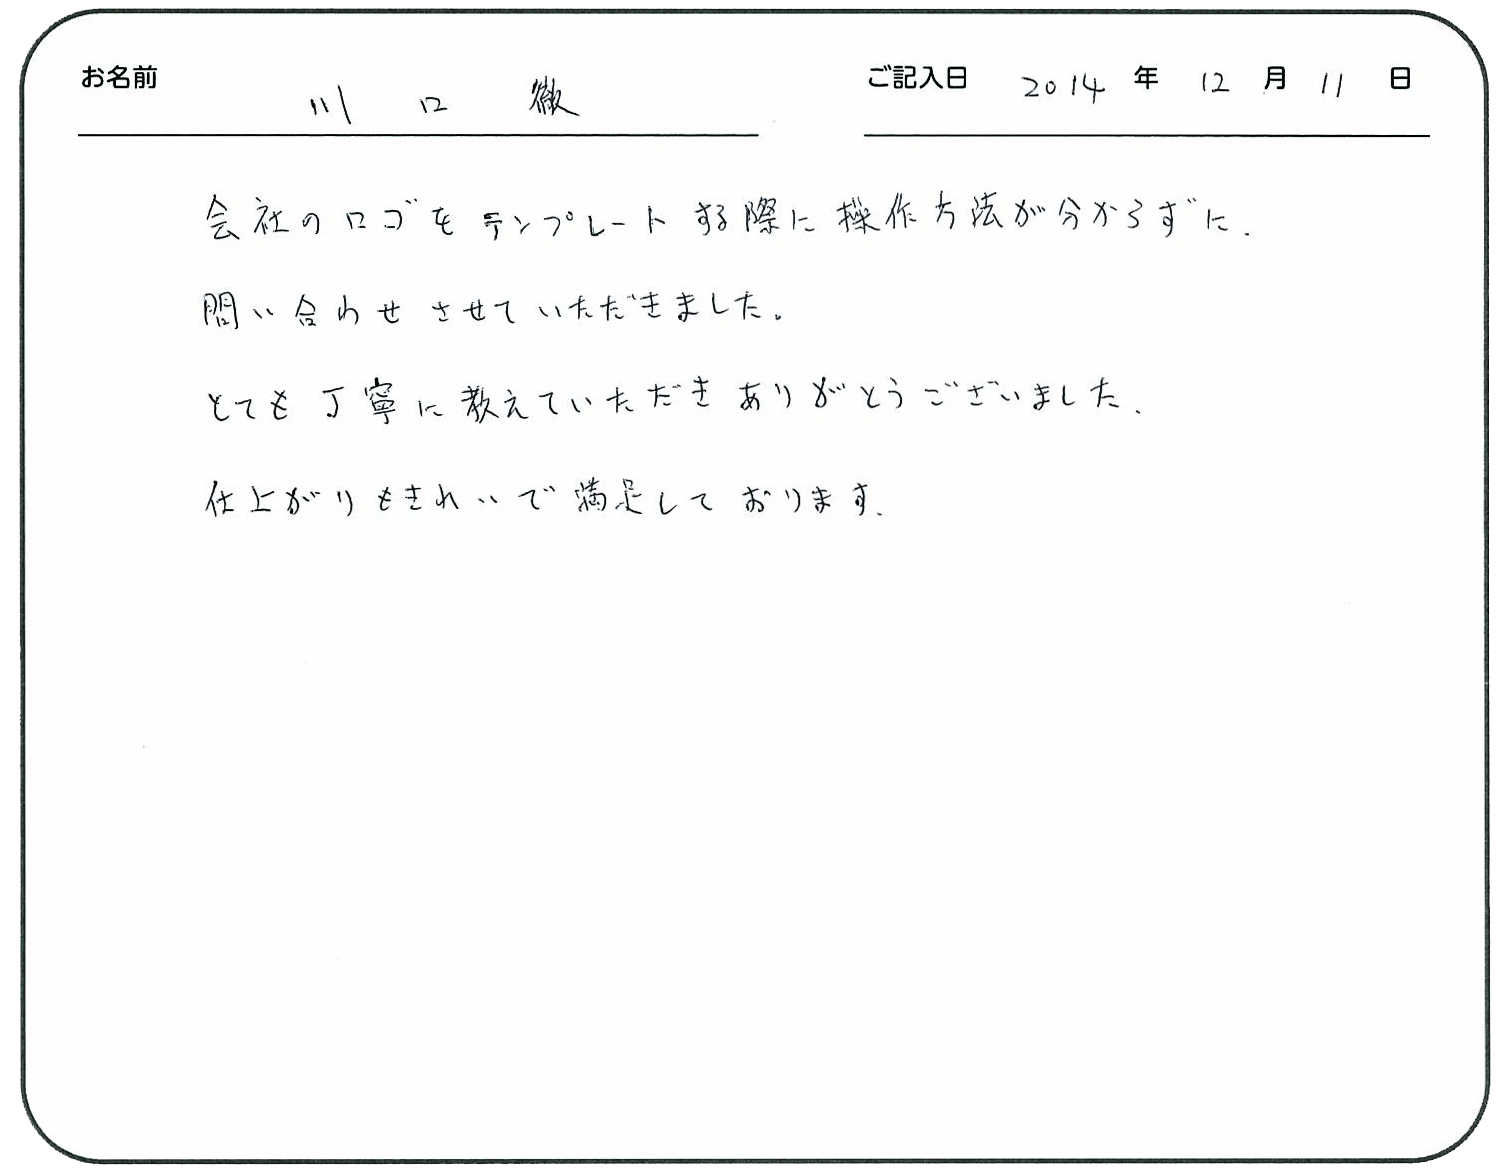 お名前 川口 徹 ご記入日 2014 年 12 月 11 日
会社のロゴをテンプレートする際に操作方法が分からずに.
問い合わせさせていただきました。
とても丁寧に教えていただきありがとうございました.
仕上がりもきれいで満足しております.